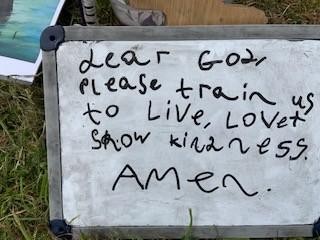 dear GOd,
please train us
to Live, LOVe+
show kindness.
AMen.